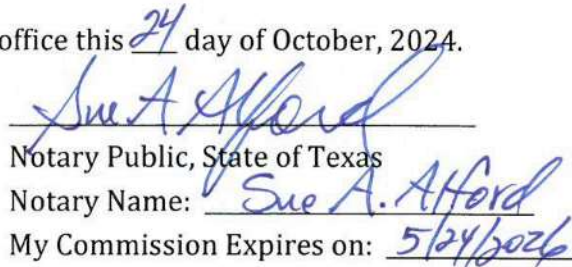 office this 24 day of October, 2024.
Sue A Alford
Notary Public, State of Texas
Notary Name: Sue A. Alford
My Commission Expires on: 5/24/2026